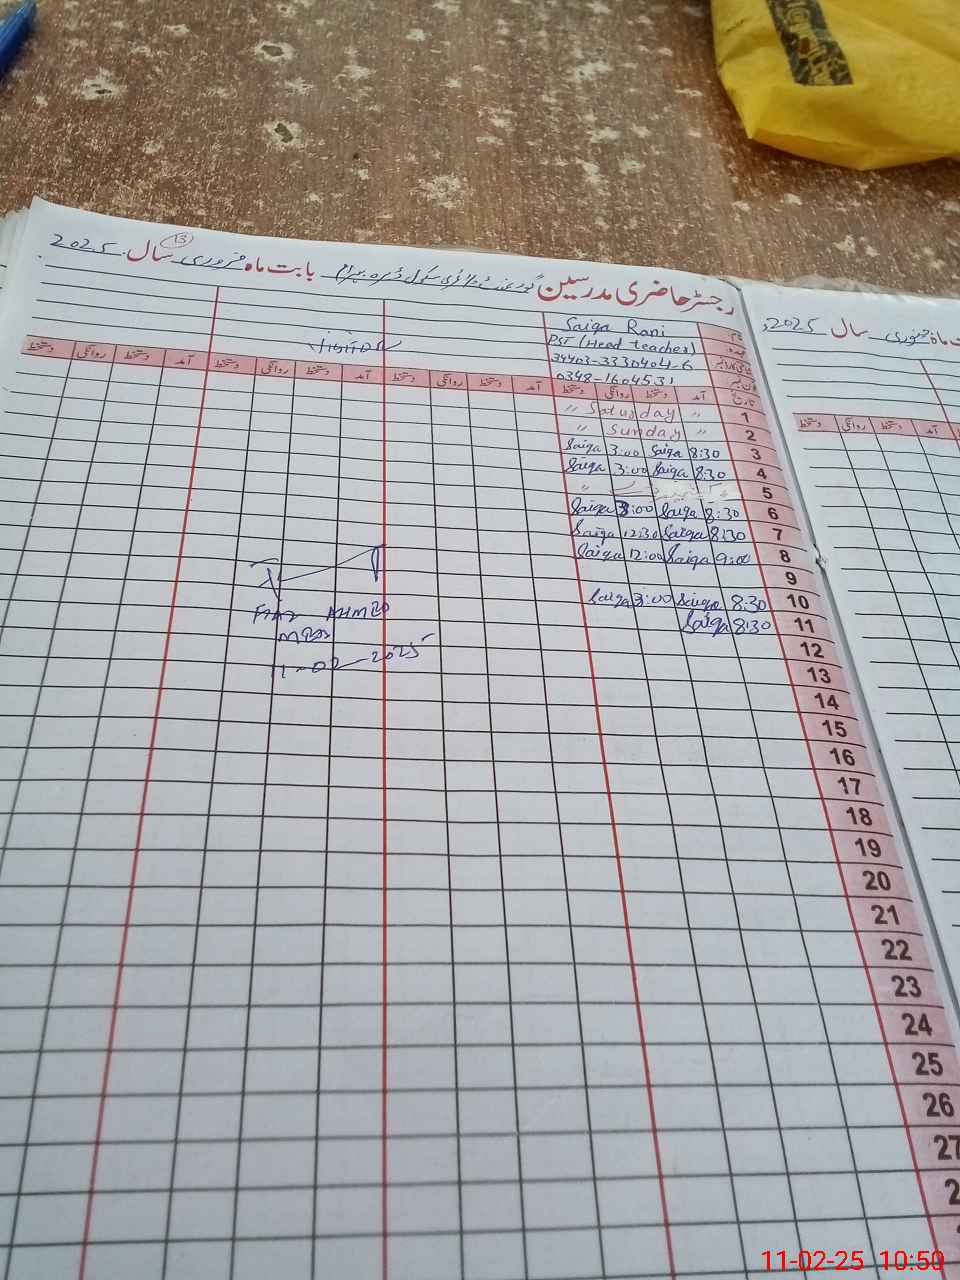 رجسٹر حاضری مدرسین گورنمنٹ پرائمری سکول ڈیرہ بہرام بابت ماہ فروری سال 2025
13
نام Saiqa Rani
عہدہ PST (Head teacher)
34403-3330404-6
0348-1604531
Visitor
تاریخ آمد دستخط روانگی دستخط آمد دستخط روانگی دستخط آمد دستخط روانگی دستخط آمد دستخط روانگی دستخط
1 " Saturday "
2 " Sunday "
3 8:30 Saiqa 3:00 Saiqa
4 8:30 Saiqa 3:00 Saiqa
5
6 8:30 Saiqa 3:00 Saiqa
7 8:30 Saiqa 12:30 Saiqa
8 9:00 Saiqa 12:00 Saiqa
9
10 8:30 Saiqa 3:00 Saiqa
11 8:30 Saiqa
12
13
14
15
16
17
18
19
20
21
22
23
24
25
26
27
AHMED
11-02-2025
ماہ جنوری سال 2025
آمد دستخط روانگی دستخط
11-02-25 10:50